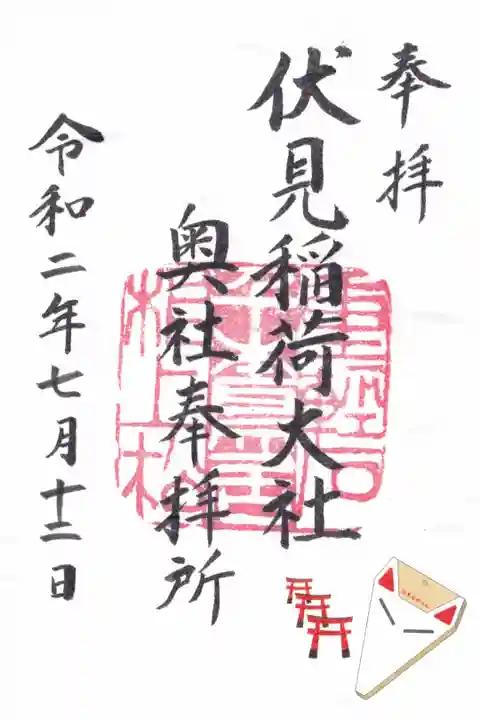 奉拝
伏見稲荷大社
奥社奉拝所
令和二年七月十二日